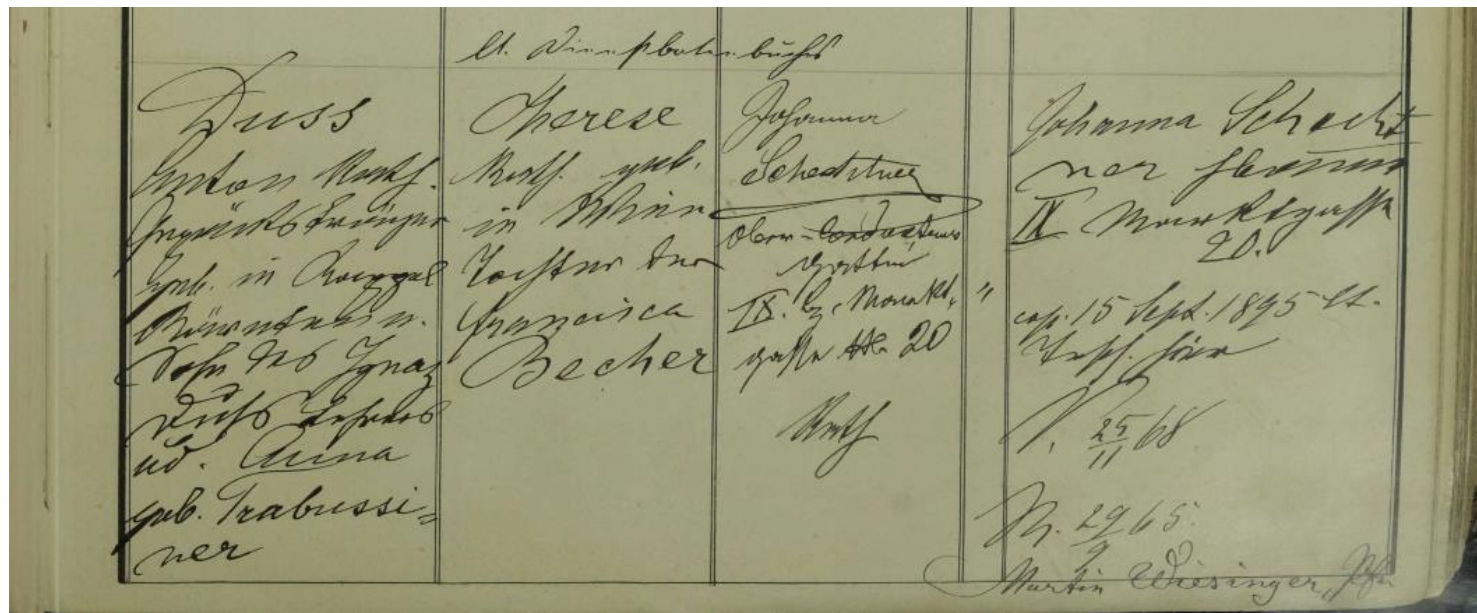 lt. Dienstbotenbuches
Duss
Anton Kath.
Gepäcksträger
geb. in
Kärnten u.
Sohn des Ignaz
Duss Lehrers
ud. Anna
geb. Trabussi-
ner
Therese
Kath. geb.
in Wien
Tochter der
Francisca
Becher
Johanna
Schechtner
Ober-Conducteurs
gattin
IX. Bz. Markt-
gasse No 20
Kath
Johanna Schecht
ner Hebamme
IX Marktgasse
20.
cop. 15 Sept. 1895 lt.
Tfsch. hier
V. 25/11 68
M. 29/9 65.
Martin Wiesinger, Pfr